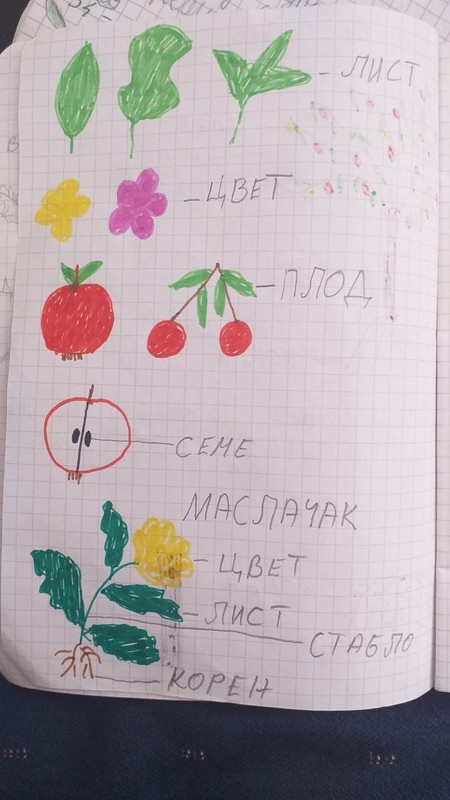 - ЛИСТ
- ЦВЕТ
- ПЛОД
СЕМЕ
МАСЛАЧАК
- ЦВЕТ
- ЛИСТ
СТАБЛО
КОРЕН